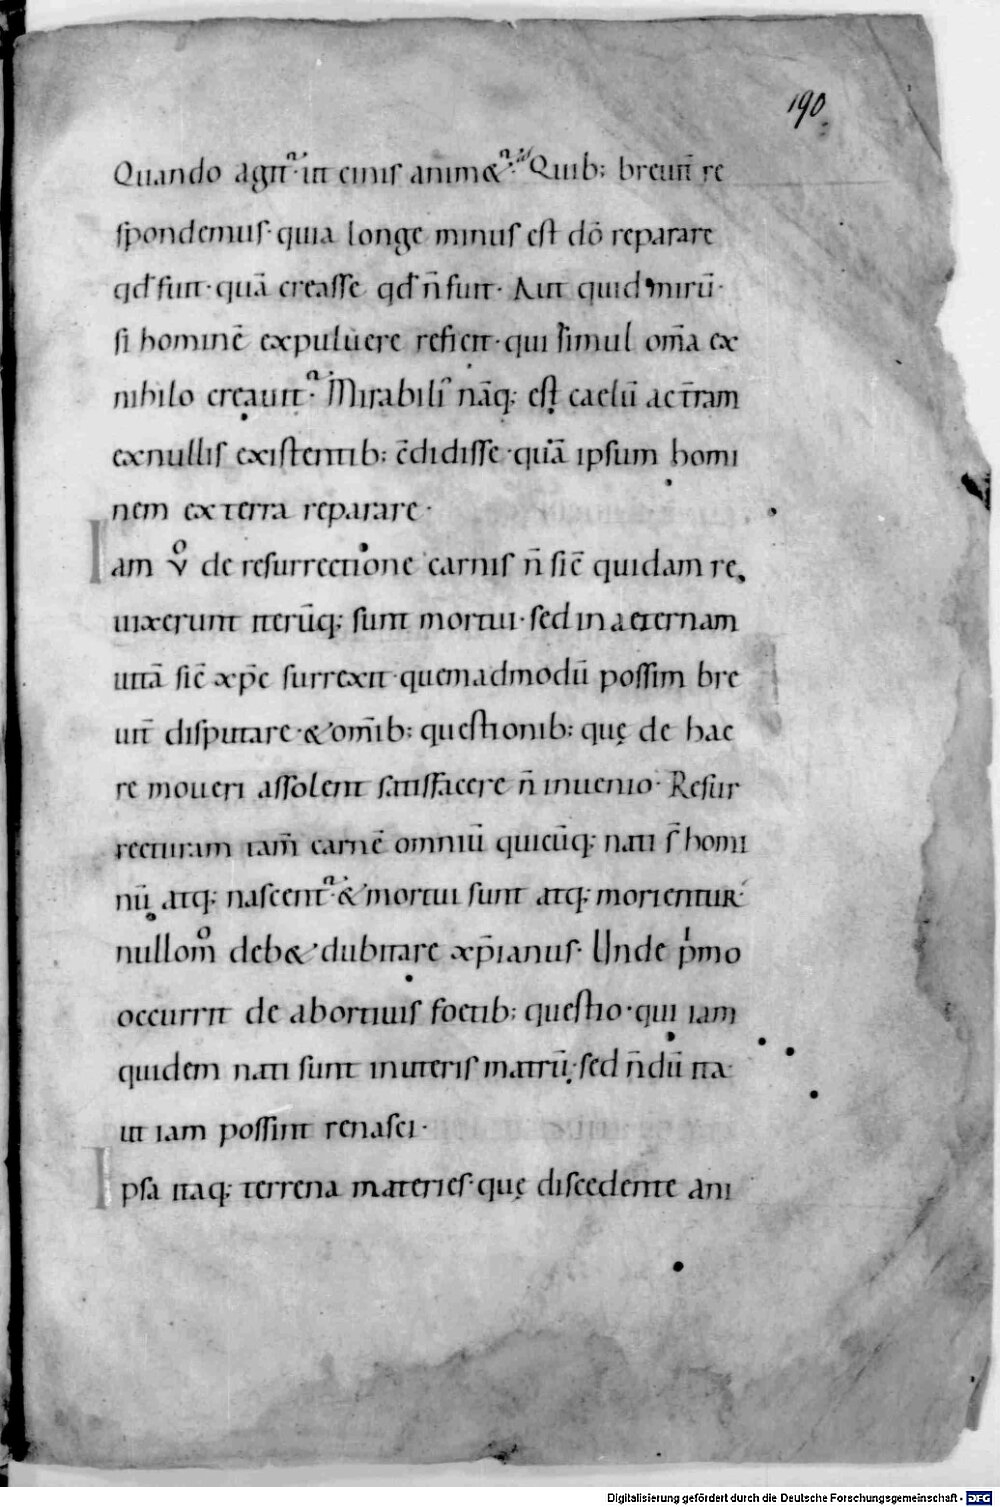 190
Quando agit᷑ ut cinis anim& Quib; breuit̄ re
spondemus· quia longe minus est dō reparare
qđ fuit· quā creasse qđ n̄ fuit· Aut quid mirū·
si hominē ex puluere reficit· qui simul om̄a ex
nihilo creauit· Mirabili᷑ nāq; est caelū ac t̄ram
ex nullis existentib; c̄didisse· quā ipsum homi
nem ex terra reparare·
Iam v̊ de resurrectione carnis n̄ sic̄ quidam re
uixerunt iterūq; sunt mortui· sed in aeternam
uitā sic̄ xp̄c surrexit· quemadmodū possim bre
uit̄ disputare· & om̄ib; questionib; quę de hac
re moueri assolent satisfacere n̄ inuenio· Resur
recturam tam̄ carnē omniū quicūq; nati s̄ homi
nū atq; nascent᷑· & mortui sunt atq; morientur·
nullom̊ deb& dubitare xp̄ianus· Unde pͥmo
occurrit de abortiuis foetib; questio· qui iam
quidem nati sunt in uteris matrū· sed n̄dū ita
ut iam possint renasci·
Ipsa itaq; terrena materies· quę discedente ani
Digitalisierung gefördert durch die Deutsche Forschungsgemeinschaft - DFG